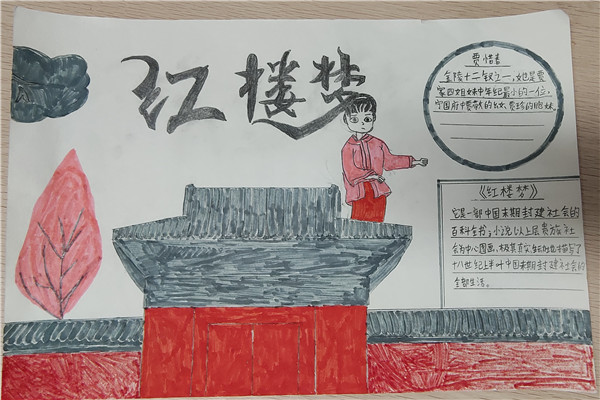 红楼梦
贾惜春
金陵十二钗之一,她是贾
家四姐妹中年纪最小的一位,
宁国府中贾敬的幼女,贾珍的胞妹
《红楼梦》
它是一部中国末期封建社会的
百科全书,小说以上层贵族社
会为中心图画,极其真实,生动地描写了
十八世纪上半叶中国末期封建社会的
全部生活。